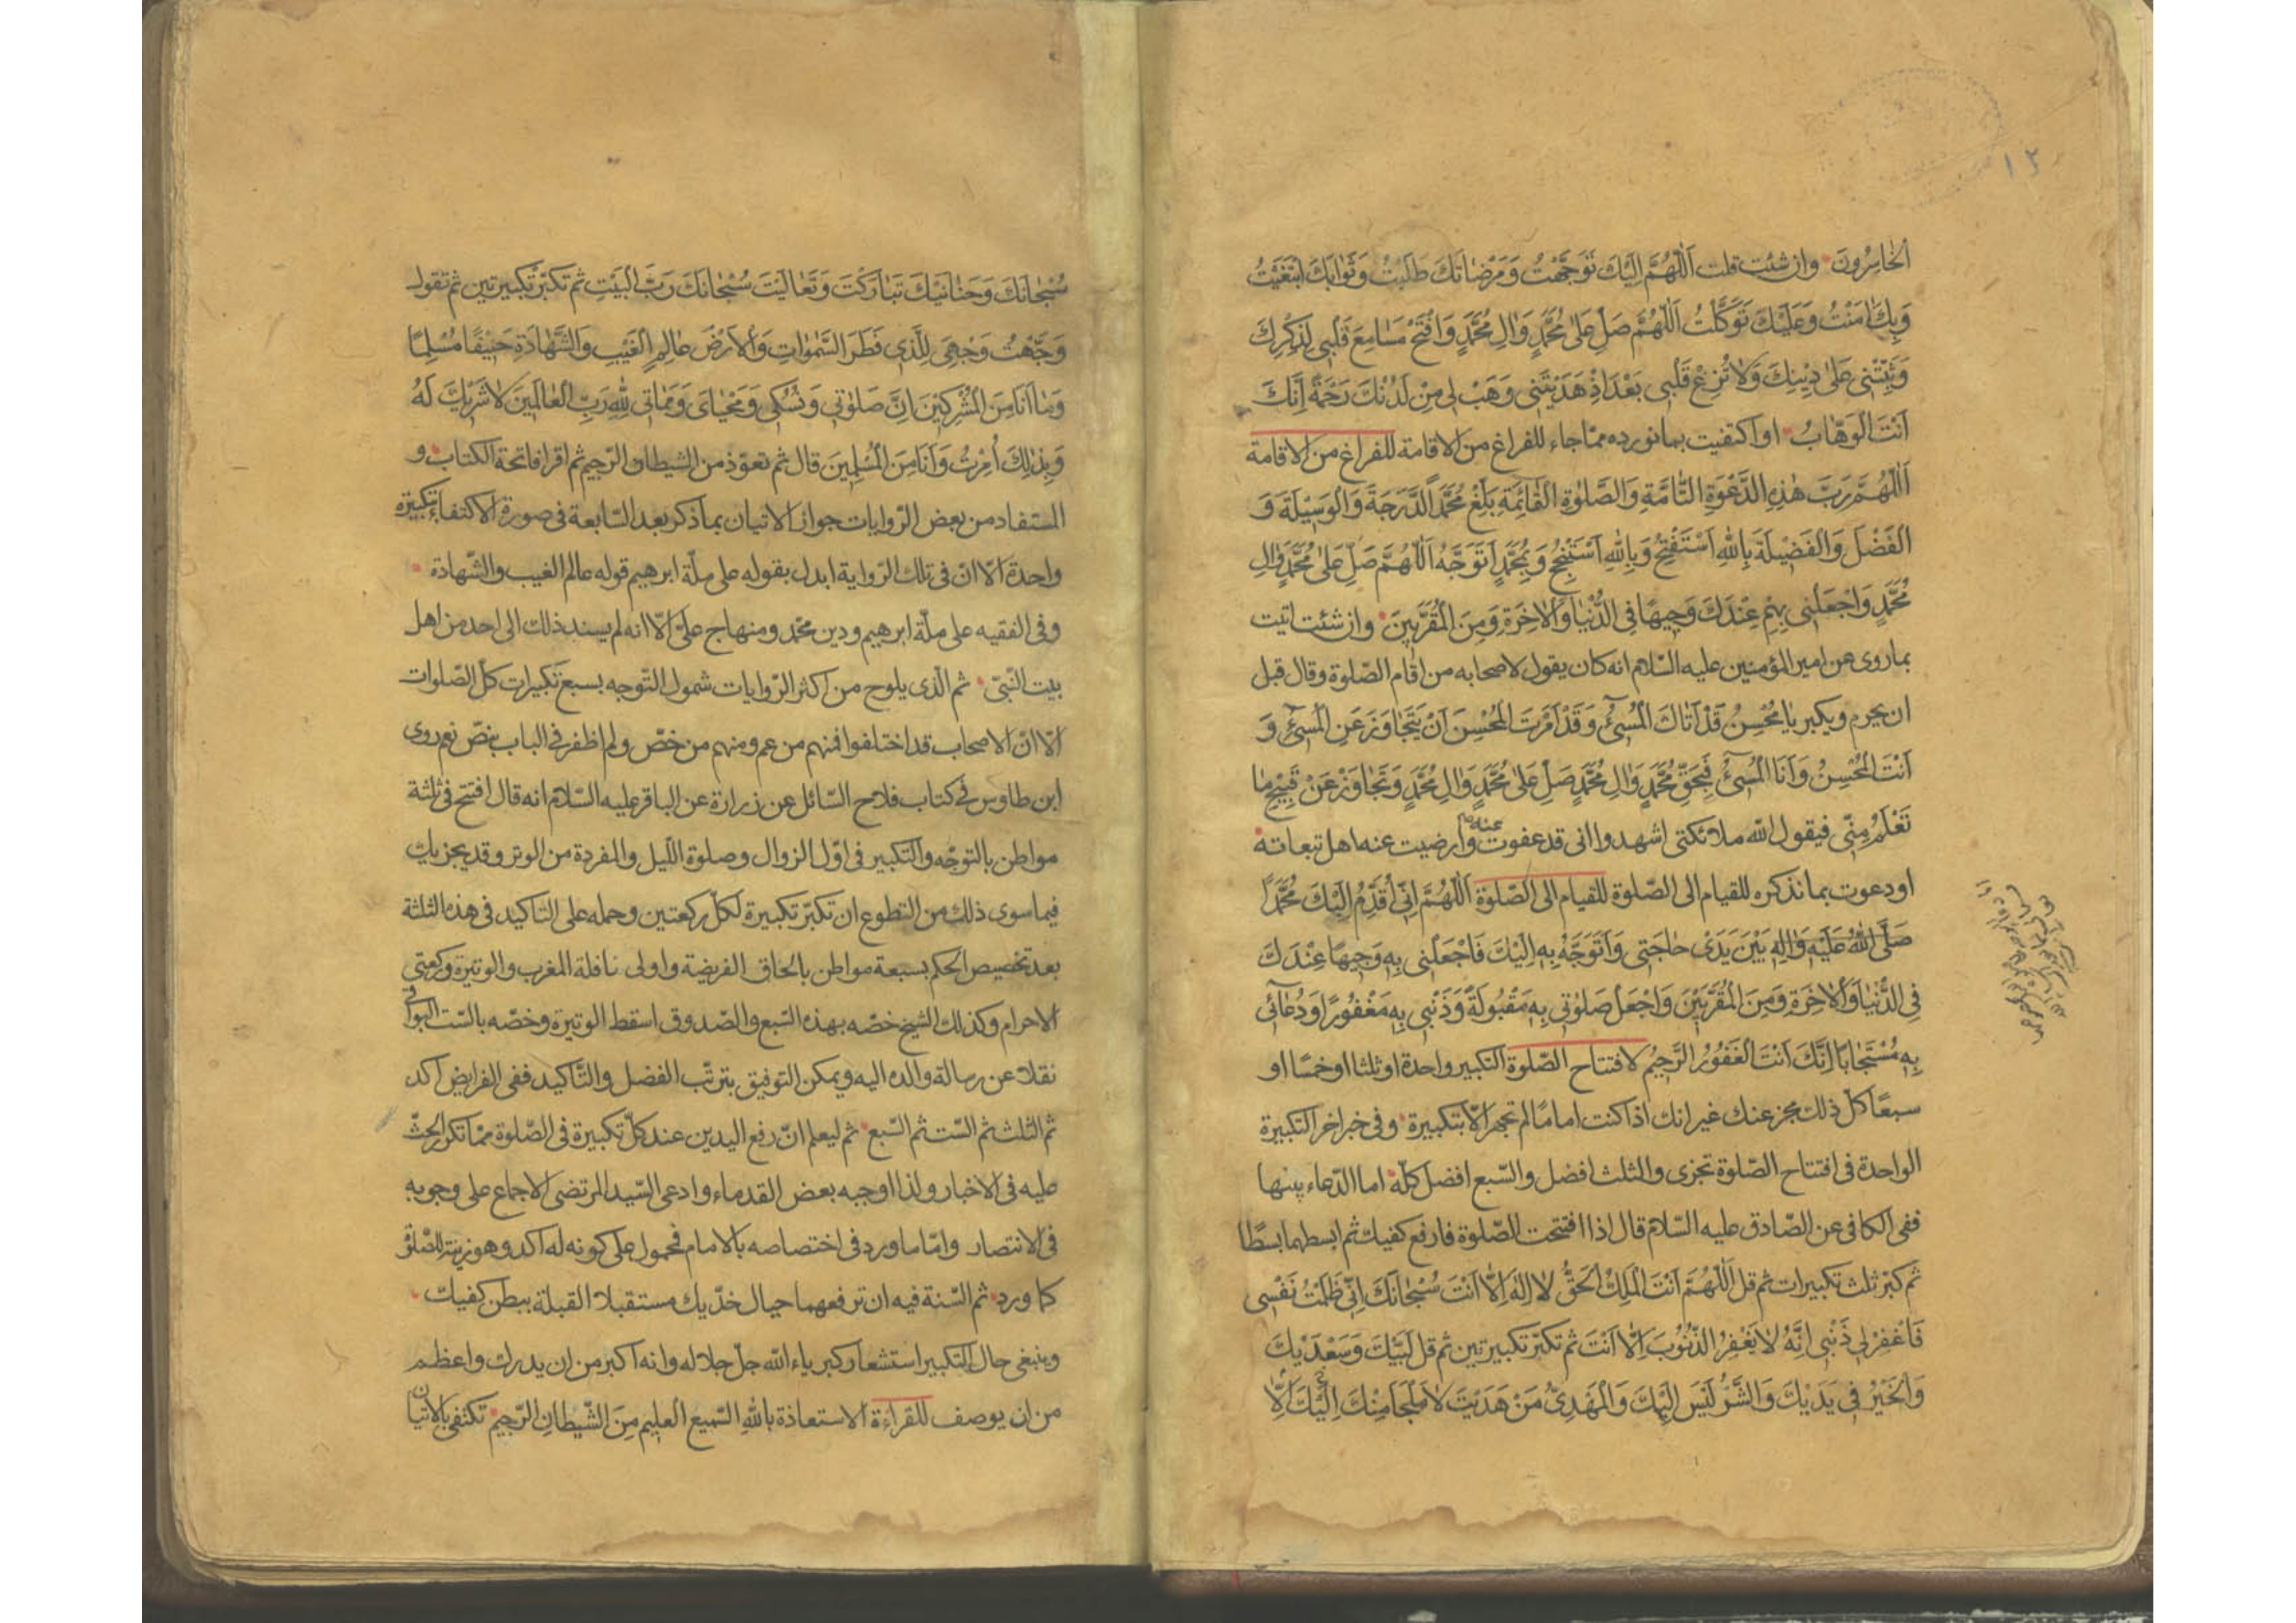 ١٢
الْخَاسِرُونَ وان شئت قلت اَللّٰهُمَّ اِلَيْكَ تَوَجَّهْتُ وَمَرْضَاتَكَ طَلَبْتُ وَثَوَابَكَ ابْتَغَيْتُ
وَبِكَ اٰمَنْتُ وَعَلَيْكَ تَوَكَّلْتُ اَللّٰهُمَّ صَلِّ عَلىٰ مُحَمَّدٍ وَاٰلِ مُحَمَّدٍ وَافْتَحْ مَسَامِعَ قَلْبِى لِذِكْرِكَ
وَثَبِّتْنِى عَلىٰ دِيْنِكَ وَلَا تُزِغْ قَلْبِى بَعْدَ اِذْ هَدَيْتَنِى وَهَبْ لِى مِنْ لَدُنْكَ رَحْمَةً اِنَّكَ
اَنْتَ الْوَهَّابُ او اكتفيت بما نورده مما جاء للفراغ من الاقامة للفراغ من الاقامة
اَللّٰهُمَّ رَبَّ هٰذِهِ الدَّعْوَةِ التَّامَّةِ وَالصَّلوٰةِ الْقَائِمَةِ بَلِّغْ مُحَمَّدًا الدَّرَجَةَ وَالْوَسِيْلَةَ وَ
الْفَضْلَ وَالْفَضِيْلَةَ بِاللّٰهِ اَسْتَفْتِحُ وَبِاللّٰهِ اَسْتَنْجِحُ وَبِمُحَمَّدٍ اَتَوَجَّهُ اَللّٰهُمَّ صَلِّ عَلىٰ مُحَمَّدٍ وَاٰلِ
مُحَمَّدٍ وَاجْعَلْنِى بِهِمْ عِنْدَكَ وَجِيْهًا فِى الدُّنْيَا وَالْاٰخِرَةِ وَمِنَ الْمُقَرَّبِيْنَ وان شئت اتيت
بما روى عن امير المؤمنين عليه السّلام انه كان يقول لاصحابه من اقام الصّلوة وقال قبل
ان يحرم ويكبر يَا مُحْسِنُ قَدْ اَتَاكَ الْمُسِىْٓءُ وَقَدْ اَمَرْتَ الْمُحْسِنَ اَنْ يَتَجَاوَزَ عَنِ الْمُسِىْٓءِ وَ
اَنْتَ الْمُحْسِنُ وَاَنَا الْمُسِىْٓءُ فَبِحَقِّ مُحَمَّدٍ وَاٰلِ مُحَمَّدٍ صَلِّ عَلىٰ مُحَمَّدٍ وَاٰلِ مُحَمَّدٍ وَتَجَاوَزْ عَنْ قَبِيْحِ مَا
تَعْلَمُ مِنِّى فيقول اللّه ملائكتى اشهدوا انى قد عفوت عنه وارضيت عنه اهل تبعاته
او دعوت بما نذكره للقيام الى الصّلوة للقيام الى الصّلوة اَللّٰهُمَّ اِنِّىْ اُقَدِّمُ اِلَيْكَ مُحَمَّدًا
صَلَّى اللّٰهُ عَلَيْهِ وَاٰلِهٖ بَيْنَ يَدَىْ حَاجَتِى وَاَتَوَجَّهُ بِهٖ اِلَيْكَ فَاجْعَلْنِى بِهٖ وَجِيْهًا عِنْدَكَ
فِى الدُّنْيَا وَالْاٰخِرَةِ وَمِنَ الْمُقَرَّبِيْنَ وَاجْعَلْ صَلوٰتِى بِهٖ مَقْبُولَةً وَذَنْبِى بِهٖ مَغْفُورًا وَدُعَآئِى
بِهٖ مُسْتَجَابًا اِنَّكَ اَنْتَ الْغَفُوْرُ الرَّحِيْمُ لافتتاح الصّلوة التكبير واحدة او ثلثا او خمسًا او
سبعًا كلّ ذلك مجز عنك غير انك اذا كنت امامًا لم تجهر الّا بتكبيرة وفى خبر اخر التكبيرة
الواحدة فى افتتاح الصّلوة تجزى والثلث افضل والسّبع افضل كلّه اما الدّعاء بينها
ففى الكافى عن الصّادق عليه السّلام قال اذا افتتحت الصّلوة فارفع كفيك ثم ابسطهما بسطًا
ثم كبّر ثلث تكبيرات ثم قل اَللّٰهُمَّ اَنْتَ الْمَلِكُ الْحَقُّ لَا اِلٰهَ اِلَّا اَنْتَ سُبْحَانَكَ اِنِّى ظَلَمْتُ نَفْسِى
فَاغْفِرْ لِى ذَنْبِى اِنَّهُ لَا يَغْفِرُ الذُّنُوْبَ اِلَّا اَنْتَ ثم تكبّر تكبيرتين ثم قل لَبَّيْكَ وَسَعْدَيْكَ
وَالْخَيْرُ فِى يَدَيْكَ وَالشَّرُّ لَيْسَ اِلَيْكَ وَالْمَهْدِىُّ مَنْ هَدَيْتَ لَا مَلْجَاَ مِنْكَ اِلَّا اِلَيْكَ
سُبْحَانَكَ وَحَنَانَيْكَ تَبَارَكْتَ وَتَعَالَيْتَ سُبْحَانَكَ رَبَّ الْبَيْتِ ثم تكبّر تكبيرتين ثم تقول
وَجَّهْتُ وَجْهِىَ لِلَّذِى فَطَرَ السَّمٰوَاتِ وَالْاَرْضَ عَالِمِ الْغَيْبِ وَالشَّهَادَةِ حَنِيْفًا مُسْلِمًا
وَمَا اَنَا مِنَ الْمُشْرِكِيْنَ اِنَّ صَلوٰتِى وَنُسُكِى وَمَحْيَاىَ وَمَمَاتِى لِلّٰهِ رَبِّ الْعَالَمِيْنَ لَا شَرِيْكَ لَهُ
وَبِذٰلِكَ اُمِرْتُ وَاَنَا مِنَ الْمُسْلِمِيْنَ قال ثم تعوّذ من الشيطان الرّجيم ثم اقرا فاتحة الكتاب و
المستفاد من بعض الرّوايات جواز الاتيان بما ذكر بعد السّابعة فى صورة الاكتفاء بتكبيرة
واحدة الّا انّ فى تلك الرّواية ابدل بقوله على ملّة ابرهيم قوله عالم الغيب والشّهادة
وفى الفقيه على ملّة ابرهيم ودين محمّد ومنهاج علىّ الّا انه لم يسند ذلك الى احد من اهل
بيت النّبىّ ثم الّذى يلوح من اكثر الرّوايات شمول التّوجه بسبع تكبيرات كلّ الصّلوات
الّا انّ الاصحاب قد اختلفوا فمنهم من عم ومنهم من خصّ ولم اظفر فى الباب بنصّ نعم روى
ابن طاوس فى كتاب فلاح السّائل عن زرارة عن الباقر عليه السّلام انه قال افتتح فى ثلثة
مواطن بالتوجّه والتكبير فى اوّل الزوال وصلوة اللّيل والمفردة من الوتر وقد يجزيك
فيما سوى ذلك من التطوع ان تكبّر تكبيرة لكلّ ركعتين وحمله على التاكيد فى هذه الثلثة
بعد تخصيص الحكم بسبعة مواطن بالحاق الفريضة واولى نافلة المغرب والوتيرة وركعتى
الاحرام وكذلك الشيخ خصّه بهذه السّبع والصّدوق اسقط الوتيرة وخصّه بالسّت البواقى
نقلا عن رسالة والده اليه ويمكن التوفيق بترتّب الفضل والتّاكيد ففى الفرايض اكد
ثم الثلث ثم السّت ثم السّبع ثم ليعلم انّ رفع اليدين عند كلّ تكبيرة فى الصّلوة ممّا تكرر الحثّ
عليه فى الاخبار ولذا اوجبه بعض القدماء وادعى السّيد المرتضى الاجماع على وجوبه
فى الانتصار وامّا ما ورد فى اختصاصه بالامام فمحمول على كونه له اكد وهو زينة للصّلوة
كما ورد ثم السّنة فيه ان ترفعهما حيال خدّيك مستقبلا القبلة ببطن كفيك
وينبغى حال التكبير استشعار كبرياء اللّه جلّ جلاله وانه اكبر من ان يدرك واعظم
من ان يوصف للقراءة الاستعاذة بِاللّٰهِ السّميع العليم مِنَ الشّيطانِ الرّجيم تكتفى بالاتيان